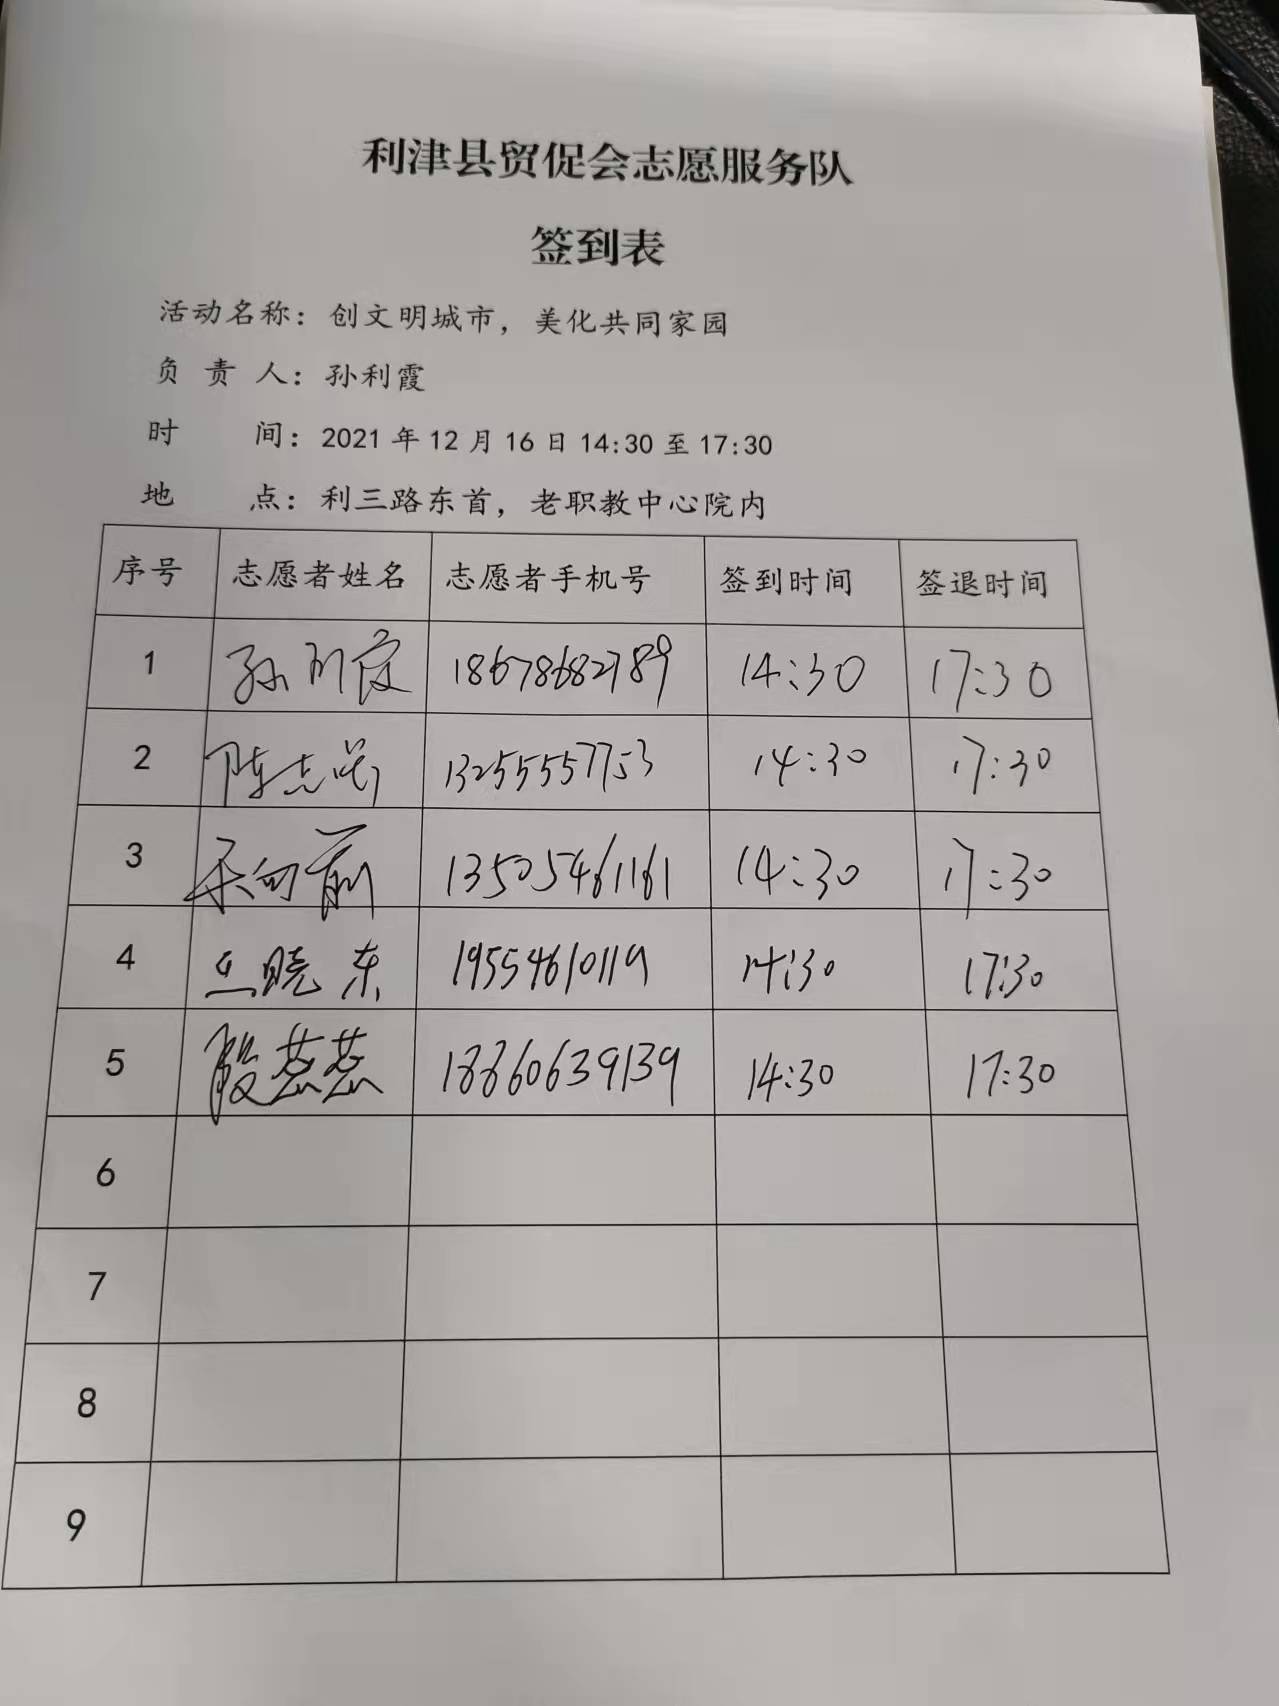 利津县贸促会志愿服务队
签到表
活动名称：创文明城市，美化共同家园
负 责 人：孙利霞
时 间：2021 年 12 月 16 日 14:30 至 17:30
地 点：利三路东首，老职教中心院内
序号 志愿者姓名 志愿者手机号 签到时间 签退时间
1 孙利霞 18678682789 14:30 17:30
2 陈志 13255557753 14:30 17:30
3 向前 13505461161 14:30 17:30
4 晓东 19554610119 14:30 17:30
5 殷蕊蕊 18860639139 14:30 17:30
6
7
8
9